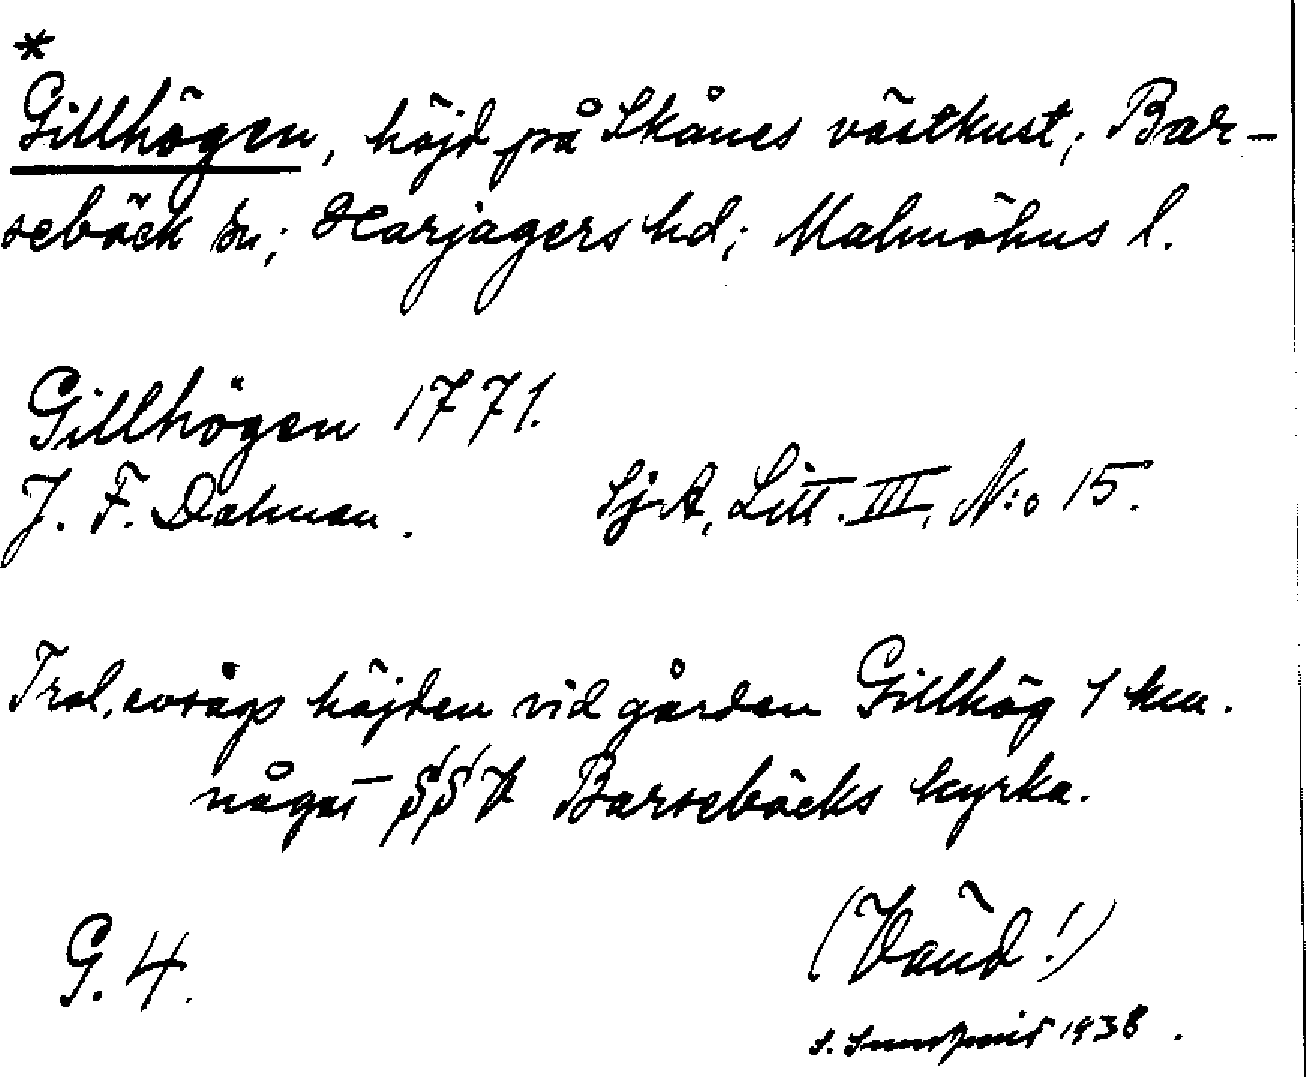 *
Gillhögen, höjd på Skånes västkust; Bar-
sebäck sn; Harjagers hd; Malmöhus l.
Gillhögen 1771.
J. F. Dalman. SjA, Litt. III, N:o 15.
Trol. avsågs höjden vid gården Gillhög 1 km.
något SSV Barsebäcks kyrka.
(Vänd!)
G. 4.
S. 1938.